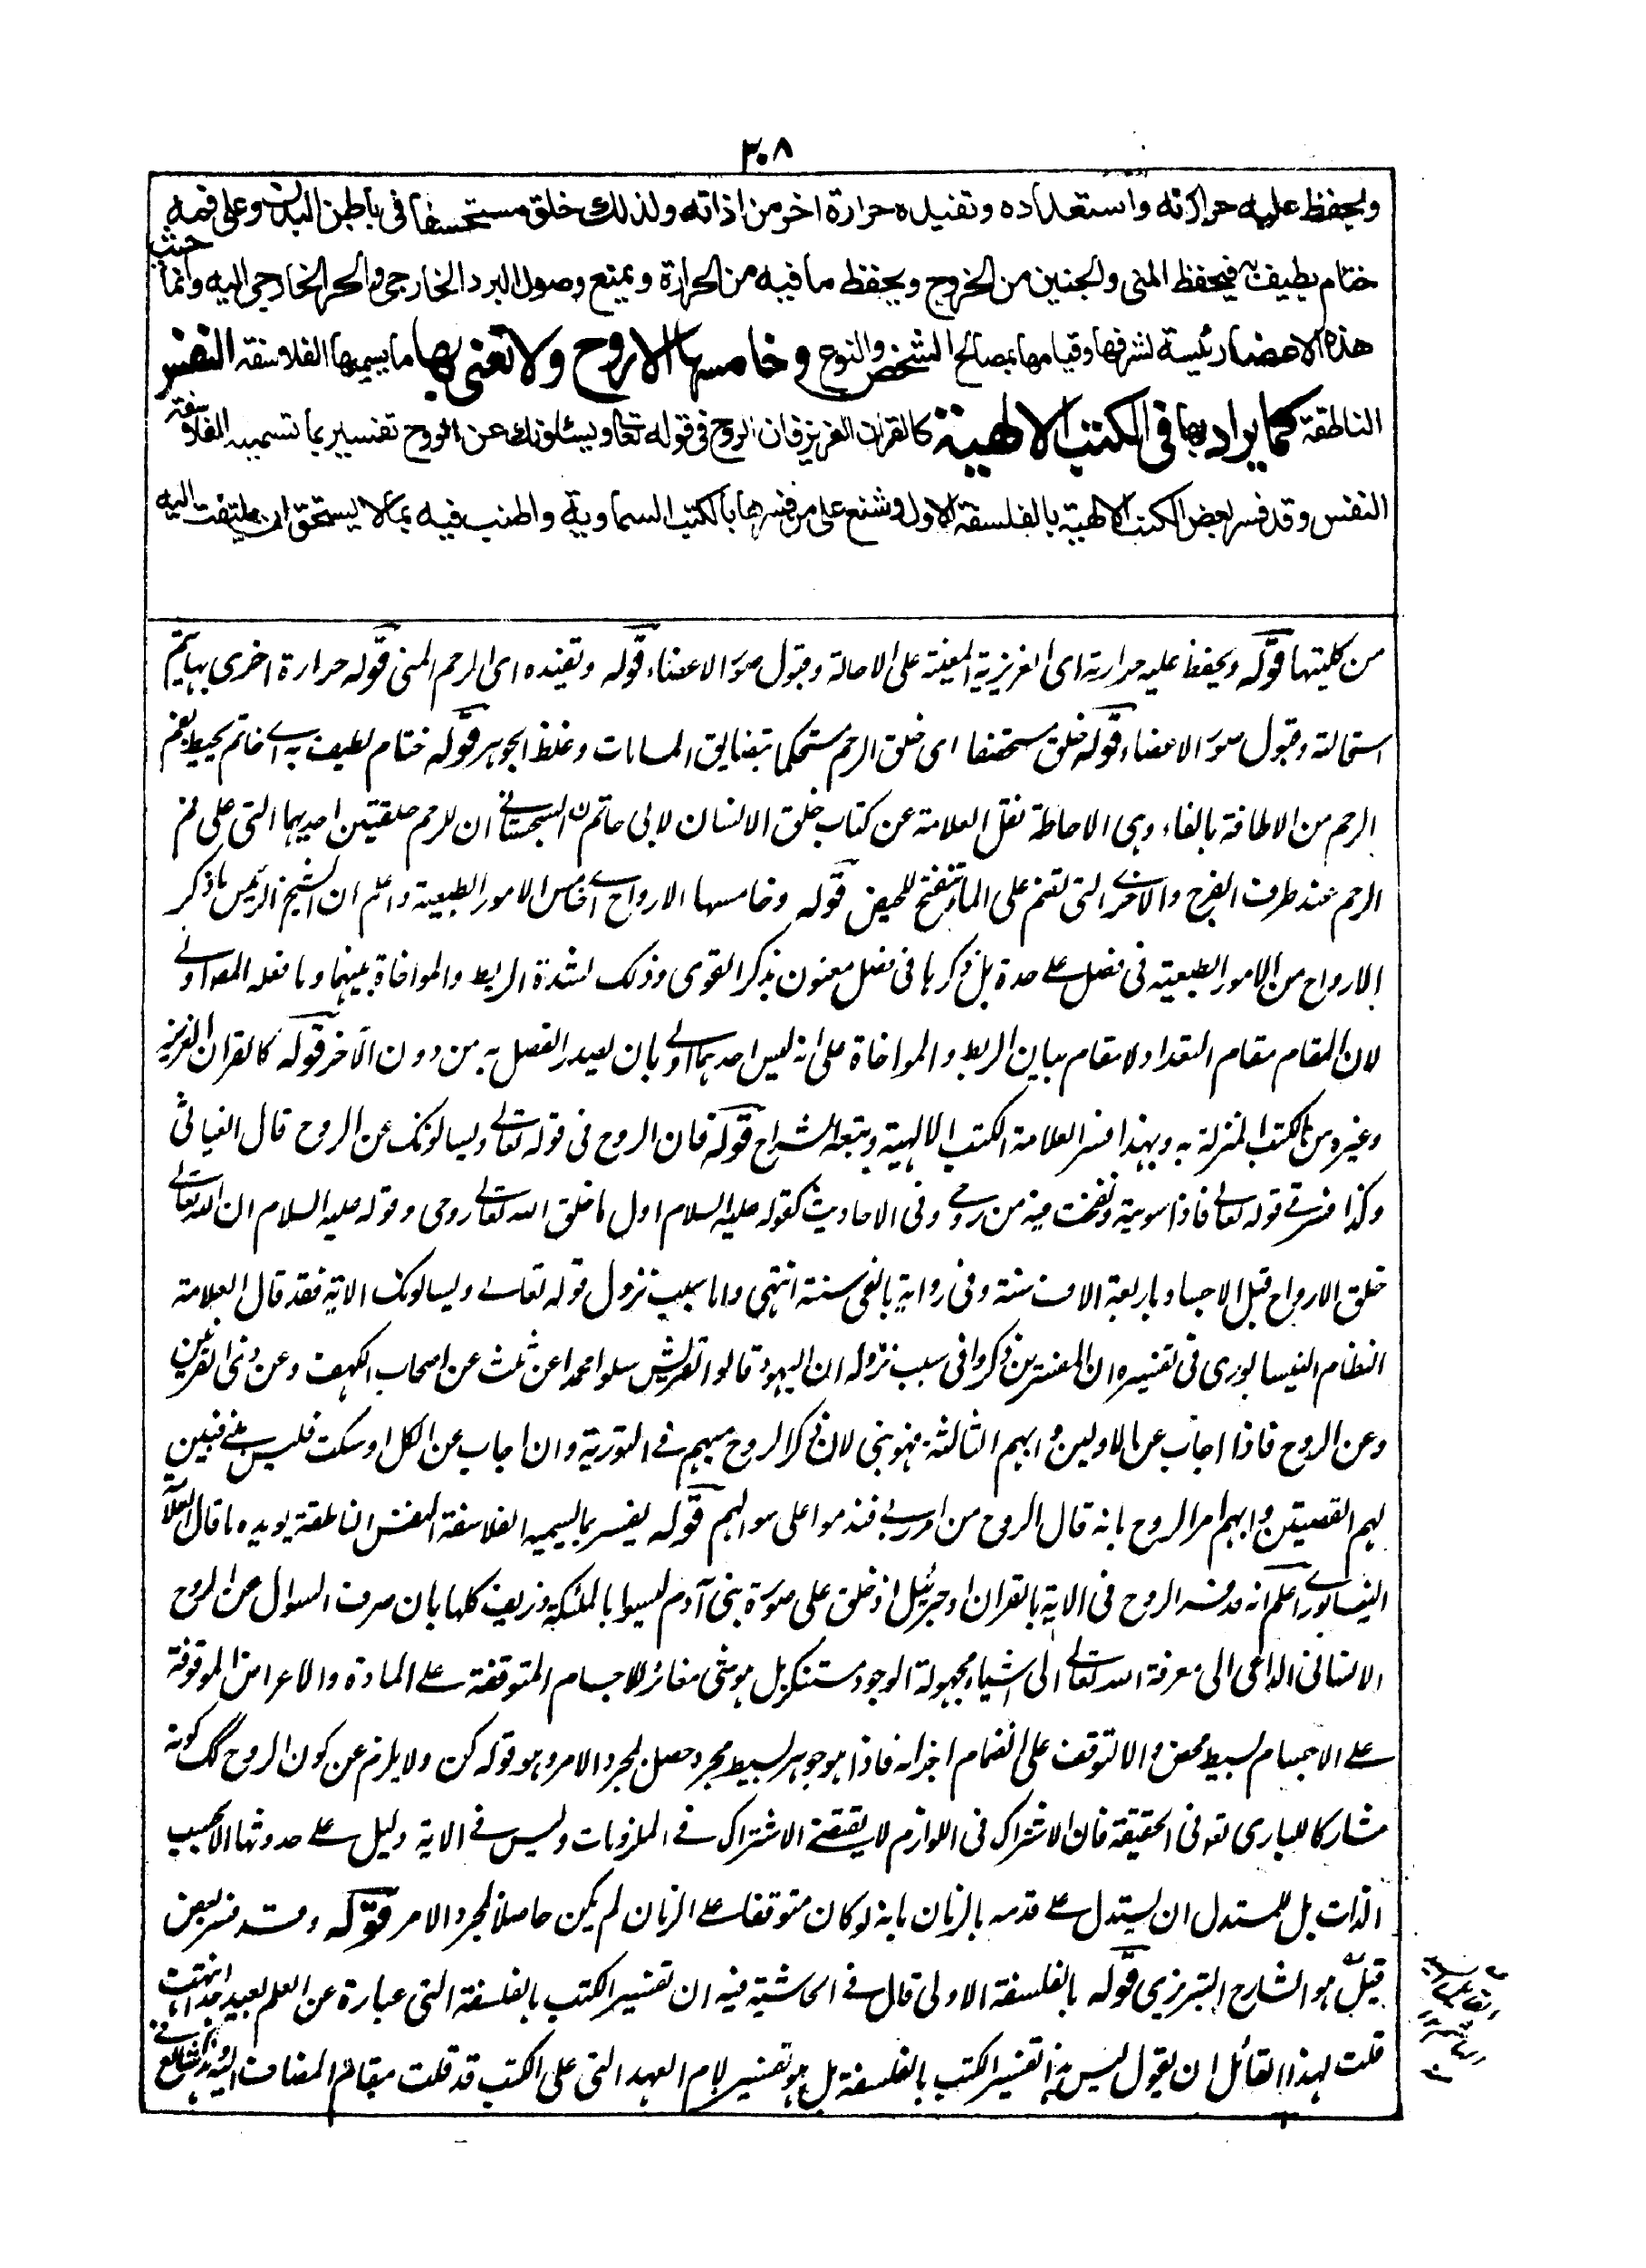 ٣٠٨
ويحفظ عليه حرارته واستعداده وتفيده حرارة اخر من اذاته ولذلك خلق مستحصفا فى باطن البدن وعلى فمه
ختام يطيف به فيحفظ المنى والجنين من الخروج ويحفظ ما فيه من الحرارة ويمنع وصول البرد الخارجى والحر الخارجى اليه وانما حسبت
هذه الاعضاء رئيسة لشرفها وقيامها بمصالح الشخص والنوع وخامسها الارواح ولا نعنى بها ما يسميها الفلاسفة النفس
الناطقة كما يراد بها فى الكتب الالهية كالقران العزيز فان الروح فى قوله تعا ويسئلونك عن الروح تفسير بما تسميه الفلاسفة
النفس وقد فسر بعض الكتب الالهية بالفلسفة الاولى وشنع على من فسرها بالكتب السماوية واطنب فيه بما لا يستحق ان يلتفت اليه
من كليتها قوله ويحفظ عليه حرارته اى الغريزية المعينة على الاحالة وقبول صور الاعضاء قوله وتفيده اى الرحم المنى قوله حرارة اخرى بها يتم
استحالته وقبول صور الاعضاء قوله خلق مستحصفا اى خلق الرحم مستحكما بتضايق المسامات وغلظ الجوهر قوله ختام لطيف به اے خاتم يحيط بفم
الرحم من الاطافة بالفاء وهى الاحاطة نقل العلامة عن كتاب خلق الانسان لابى حاتم السجستانے ان للرحم حلقتين احديهما التى على فم
الرحم عند طرف الفرج والاخرے التى تضم على الماء وتنفتح للحيض قوله وخامسها الارواح اے خامس الامور الطبيعية واعلم ان الشيخ الرئيس ما ذكر
الارواح من الامور الطبعية فى فصل علے حدة بل ذكرها فى فصل معنون بذكر القوى وذلك لشدة الربط والمواخاة بينهما وما فعله المص اولے
لان المقام مقام التعداد لا مقام بيان الربط والمواخاة على انه ليس احدهما اولے بان يصدر الفصل به من دون الآخر قوله كالقران العزيز
وغيره من الكتب المنزلة به وبهذا فسر العلامة الكتب الالهية وتبعه الشراح قوله فان الروح فى قوله تعالے ويسالونك عن الروح قال الغياثى
وكذا فسر فے قوله تعالے فاذا سويته ونفخت فيه من روحے وفى الاحاديث كقوله عليه السلام اول ما خلق الله تعالے روحى وقوله عليه السلام ان الله تعالے
خلق الارواح قبل الاجساد باربعة الاف سنة وفى رواية بالفى سنة انتهى واما سبب نزول قوله تعالے ويسالونك الاية فقد قال العلامة
النظام النيسابورى فى تفسيره ان المفسرين ذكروا فى سبب نزوله ان اليهود قالوا لقريش سلوا محمدا عن ثلث عن اصحاب الكهف وعن ذى القرنين
وعن الروح فاذا اجاب عن الاولين وابهم الثالثة فهو نبى لان ذكر الروح مبهم فے التورية وان اجاب عن الكل او سكت فليس بنبے فبين
لهم القصتين وابهم امر الروح بانه قال الروح من امر ربے فندموا على سوالهم قوله يفسر بما يسميه الفلاسفة النفس الناطقة يويده ما قال العلامة
النيسابورے اعلم انه قد فسر الروح فى الاية بالقران او جبرئيل او خلق على صورة بنى آدم ليسوا بالملئكة وزيف كلها بان صرف السوال عن الروح
الانسانى الداعى الى معرفة الله تعالے الى اشياء مجهولة الوجود مستنكر بل هو شئ مغائر للاجسام المتوقفة علے المادة والاعراض الموقوفة
علے الاجسام بسيط محض والا لتوقف على انضمام اجزائه فاذا هو جوهر بسيط مجرد حصل لمجرد الامر وهو قوله كن ولا يلزم عن كون الروح كك كونه
مشاركا للبارى تع فى الحقيقة فان الاشتراك فى اللوازم لا يقتضے الاشتراك فے الملزومات وليس فے الاية دليل علے حدوثها الا بحسب
الذات بل للمستدل ان يستدل علے قدمه بالزمان بانه لو كان متوقفا علے الزمان لم يكن حاصلا لمجرد الامر قوله وقد فسر بعض
قيل هو الشارح التبريزى قوله بالفلسفة الاولى قال فے الحاشية فيه ان تفسير الكتب بالفلسفة التى عبارة عن العلم بعيد جدا انتهت
قلت لهذا القائل ان يقول ليس هذا تفسير الكتب بالفلسفة بل هو تفسير لام العهد التى على الكتب قد قلت مقام المضاف اليه